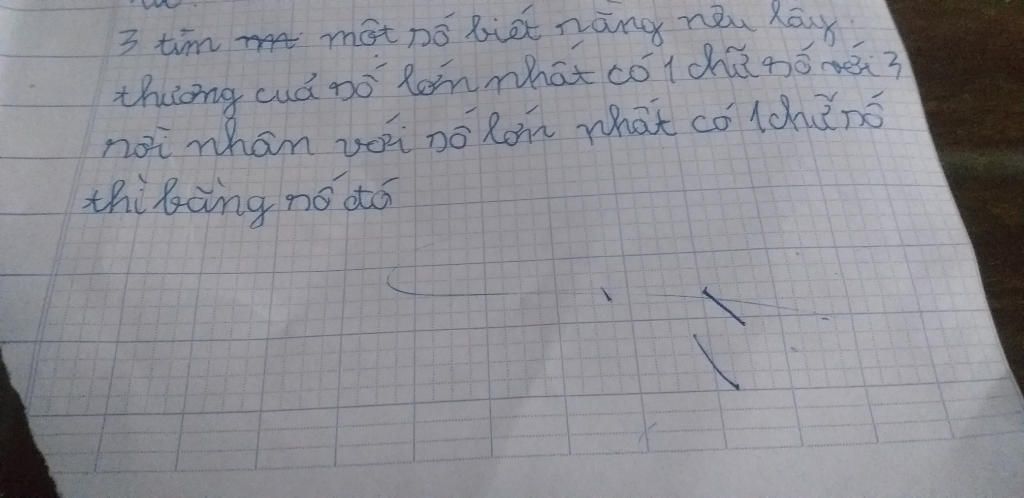 3 tìm một số biết rằng nếu lấy
thương của số lớn nhất có 1 chữ số với 3
rồi nhân với số lớn nhất có 1 chữ số
thì bằng số đó